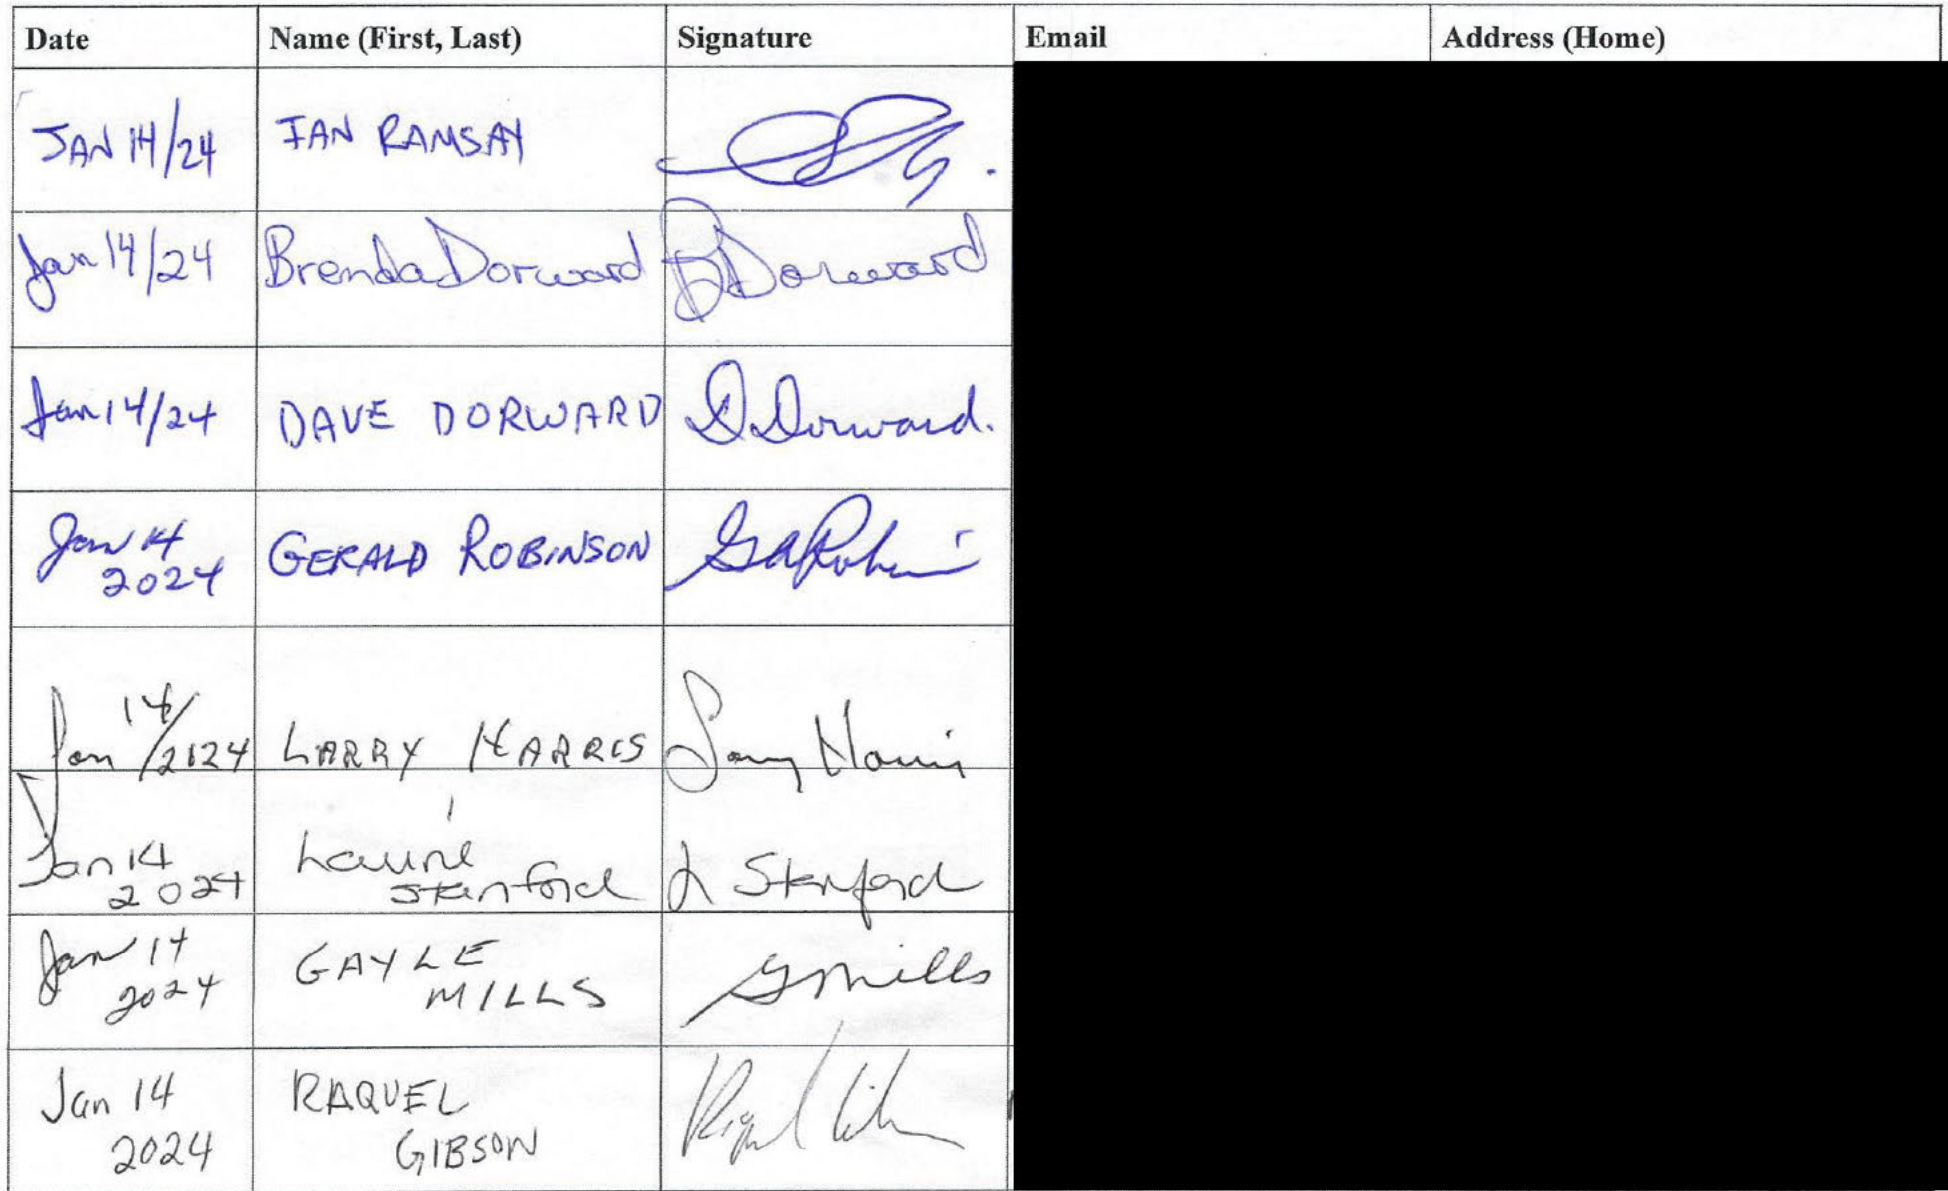 Date Name (First, Last) Signature Email Address (Home)
JAN 14/24 IAN RAMSAY
Jan 14/24 Brenda Dorward B Dorward
Jan 14/24 DAVE DORWARD D. Dorward.
Jan 14 GERALD ROBINSON
2024
Jan 14/2124 LARRY HARRIS Larry Harris
Jan 14 Laurie L Stanford
2024 Stanford
Jan 14 GAYLE G Mills
2024 MILLS
Jan 14 RAQUEL
2024 GIBSON